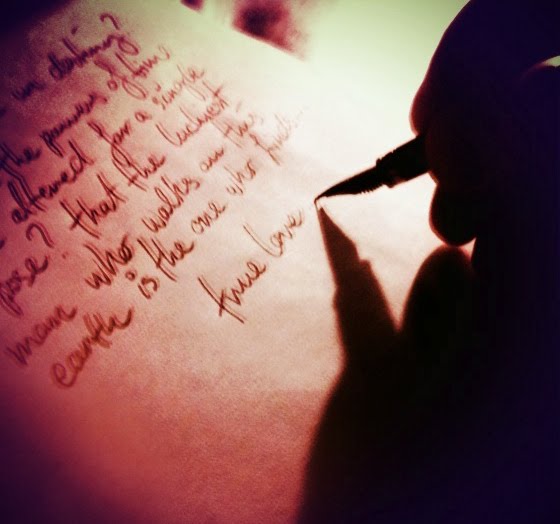 in destiny?
the powers of time
altered for a single
pose? that the luckiest
man who walks on this
earth is the one who finds...
true love